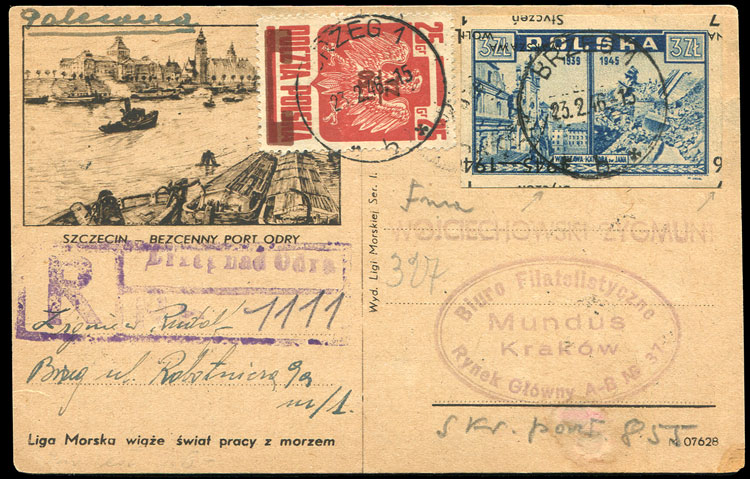 Polecona
SZCZECIN BEZCENNY PORT ODRY
R
Brzeg nad Odrą
1111
Brzeg ul. Robotnicza 9a
m/1.
Liga Morska wiąże świat pracy z morzem
Wyd. Ligi Morskiej Ser. I.
25 GR
POCZTA POLSKA
BRZEG 1
23.2.46.-15
b
3ZŁ POLSKA 3ZŁ
1939 1945
WARSZAWA-KATEDRA ŚW. JANA
Styczeń
23.2.46.-15
Firma
WOJCIECHOWSKI ZYGMUNT
327
Biuro Filatelistyczne
Mundus
Kraków
Rynek Główny A-B № 37
skr. poczt 855
N 07628